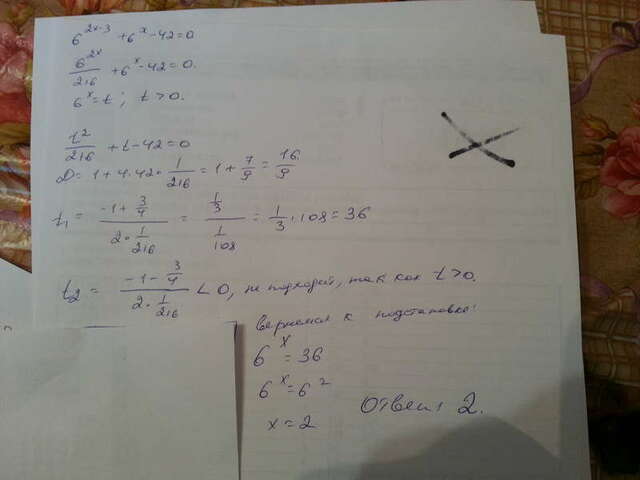 6^{2x-3} + 6^x - 42 = 0
6^{2x}/216 + 6^x - 42 = 0.
6^x = t; t > 0.
t^2/216 + t - 42 = 0
D = 1 + 4 · 42 · 1/216 = 1 + 7/9 = 16/9
t_1 = (-1 + 3/4)/(2 · 1/216) = (1/3)/(1/108) = 1/3 · 108 = 36
t_2 = (-1 - 3/4)/(2 · 1/216) < 0, не подходит, так как t > 0.
Вернемся к подстановке:
6^x = 36
6^x = 6^2
x = 2
Ответ: 2.